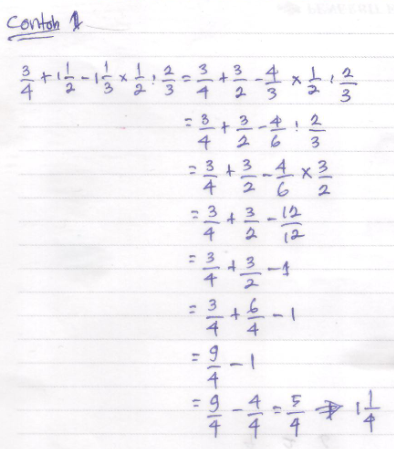 Contoh 1
3/4 + 1 1/2 - 1 1/3 × 1/2 : 2/3 = 3/4 + 3/2 - 4/3 × 1/2 : 2/3
= 3/4 + 3/2 - 4/6 : 2/3
= 3/4 + 3/2 - 4/6 × 3/2
= 3/4 + 3/2 - 12/12
= 3/4 + 3/2 - 1
= 3/4 + 6/4 - 1
= 9/4 - 1
= 9/4 - 4/4 = 5/4 ⇒ 1 1/4